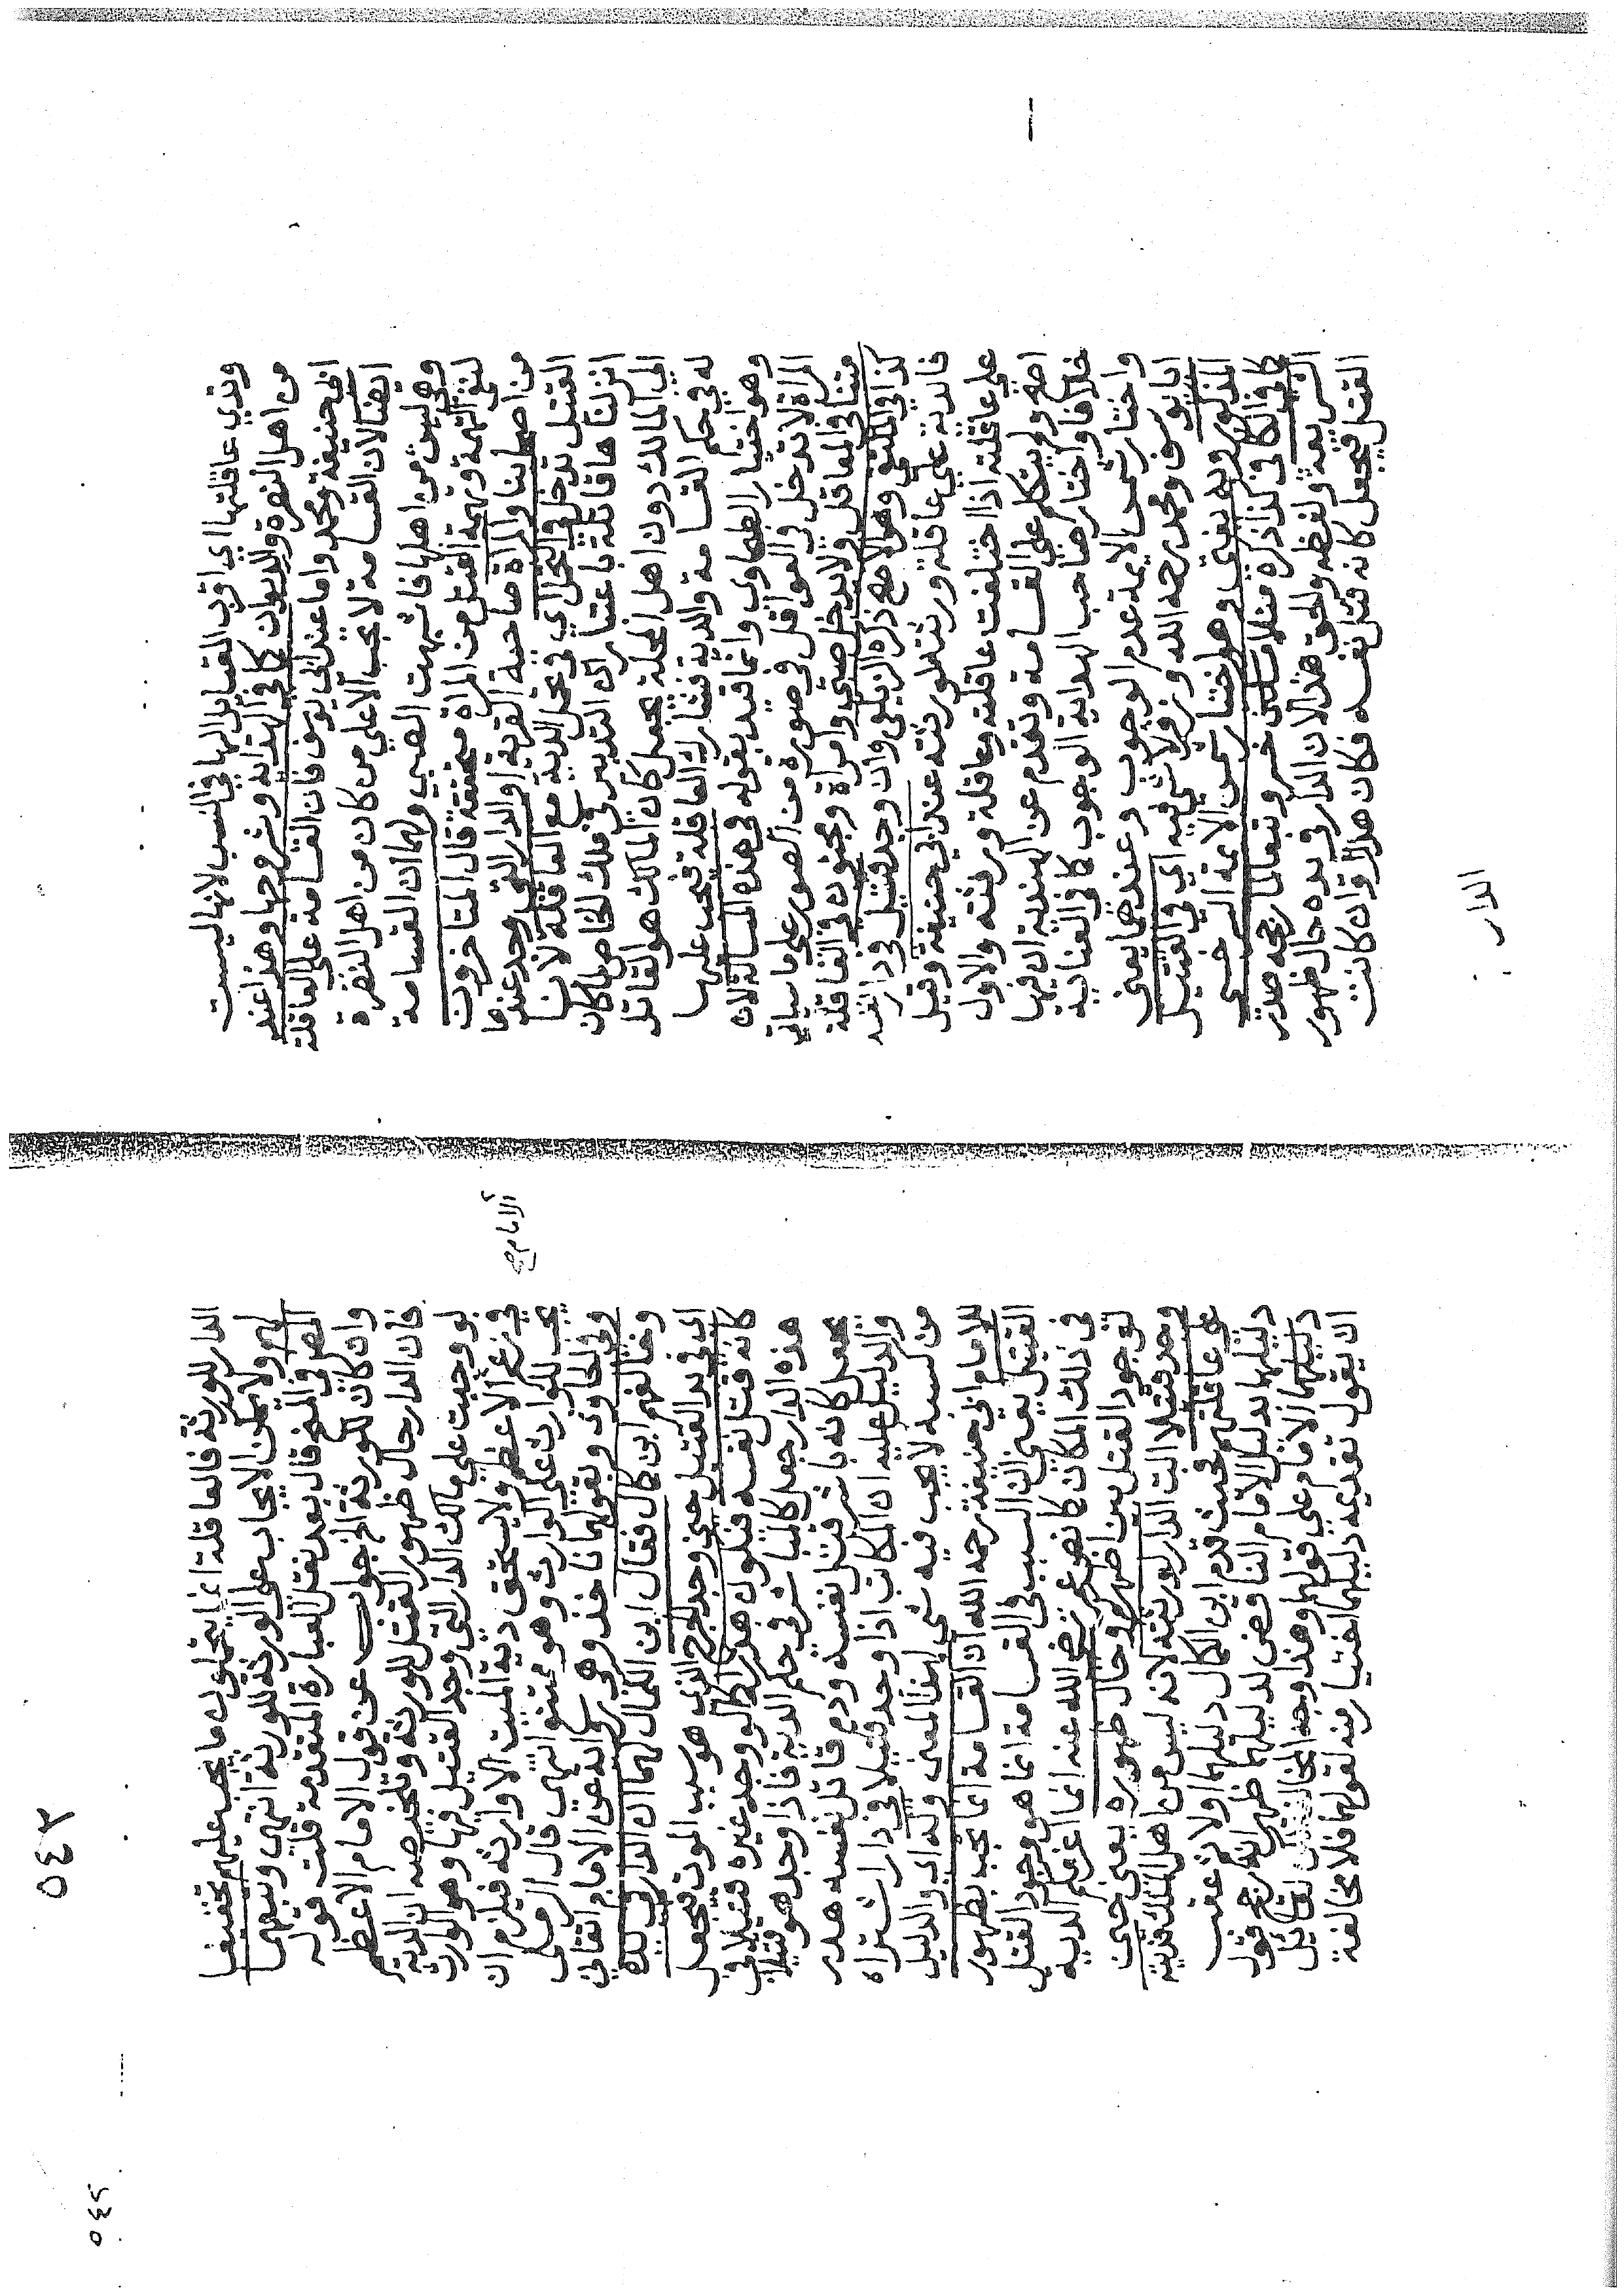 وتدي عاقلتها اي اقرب القبايل اليها في النسب لانها ليست
من اهل النصرة والديوان كما في الهداية وشروحها وهذا عند
ابي حنيفة ومحمد واما عند ابي يوسف فان القسامة على العاقلة
ايضا لان القسامة لا تجب الا على من كان من اهل النصرة
وهي ليست من اهلها فاشبهت الصبي ولهما ان القسامة
لنفي التهمة وتهمة القتل من المراة متحققة قال المتاخرون
من اصحابنا والمراة صاحبة القرية او الدار التي وجد عندها
القتيل تدخل في التحمل اي في تحمل الدية مع العاقلة لانا
انزلناها قاتلة باعتبار ان التدبير في ملك الخاص لما كان
الى المالك دون اهل المحلة يجعل كان المالك هو القاتل
له في حكم القسامة والدية فتشارك العاقلة فتجب عليها
وهو اختيار الطحاوي وانما قيد بقوله في هذه المسالة لان
المراة لا تدخل في العواقل في صورة من الصور على ما سياتي
متنا في المعاقل ولا يدخل صبي وامراة ومجنون في العاقلة
كذا في الملتقى وهو الاصح ذكره الزيلعي وان وجد قتيل في دار نفسه
فالدية على عاقلة ورثته لورثته عند ابي حنيفة وقيل
على عاقلته اذا اختلفت عاقلته وعاقلة ورثته والاول
اصح ولم يتكلم على القسامة وتقدم عن الهندية ان فيها
خلافا واختار صاحب الهداية الوجوب كما في العناية
واختار شمس الايمة عدم الوجوب وعندهما يعني
ابا يوسف ومحمد رحمه الله وزفر لا شي فيه اي في القتيل
المذكور وبه يفتى وهو اختيار شمس الايمة السرخسي
كما في الكافي كذا ذكره منلا مسكين خسرو تبعا لما رجحه صدر
الشريعة ولفظه والحق هذا لان الدار في يده حال ظهور
القتل فيجعل كانه قتل نفسه فكان هدرا وان كانت
الدار
الدار للورثة فالعاقلة انما يتحملون ما يجب عليهم تخفيفا
لهم ولا يمكن الايجاب على الورثة للورثة انتهى وتبعهما
المص في المنح قال بعد نقل العبارة المتقدمة قلت قوله
وان كان للورثة الخ جواب عن قول الامام الاعظم
فان الدار حال ظهور القتل للورثة وتلخيصه ان الدية
لو وجبت على مالك الدار التي وجد القتيل فيها وهو الوارث
في زعم الاعظم ولا يستحق دية الميت الا وارثه فيلزم ان
يجب للوارث على الوارث وهو ممتنع انتهى قال الرملي
وفي الحاوي وبقولهما ناخذ وهي الدعوى الامام اتقاني
وخالفهم ابن كمال فقال ابن الكمال لهما ان الدار في يده
اي في يد القتيل حين وجد الجرح الذي هو سبب الموت فيجعل
كانه قتل نفسه فيكون هدرا كما لو وجد غيره قتيلا في
هذه الدار جعل كالمباشر في حكم الدية فاذا وجد هو قتيلا
يجعل كانه باشر قتل نفسه ودم قاتل نفسه هدر
والدليل عليه ان المكاتب اذا وجد قتيلا في دار اشتراه
من كسبه لا يجب فيه شي لهذا المعنى وله اي والدليل
للامام ابي حنيفة رحمه الله ان القسامة انما تجب بظهور
القتيل يعني ان السبب في القسامة انما هو وجود القتل
في ذلك المكان كما نص عمر رضي الله عنه انما اغرمكم الدية
لوجود القتل بين اظهركم وحال ظهوره يعني حين
وجد قتيلا الت الدار لورثته لانه ليس من اهل الملك فديته
على عاقلتهم فحيث قدم ابن الكمال دليلهما اولا ثم عقب
دليلهما بدليل الامام الناقض لدليلهما ظهر انه رجح قول
دليلهما الامام على قولهما وهذا وجه المخالفة لكن لقائل
ان يقول تقديمه دليلهما اختيار منه لقولهما فلا مخالفة
الامام صح
٥٤٣